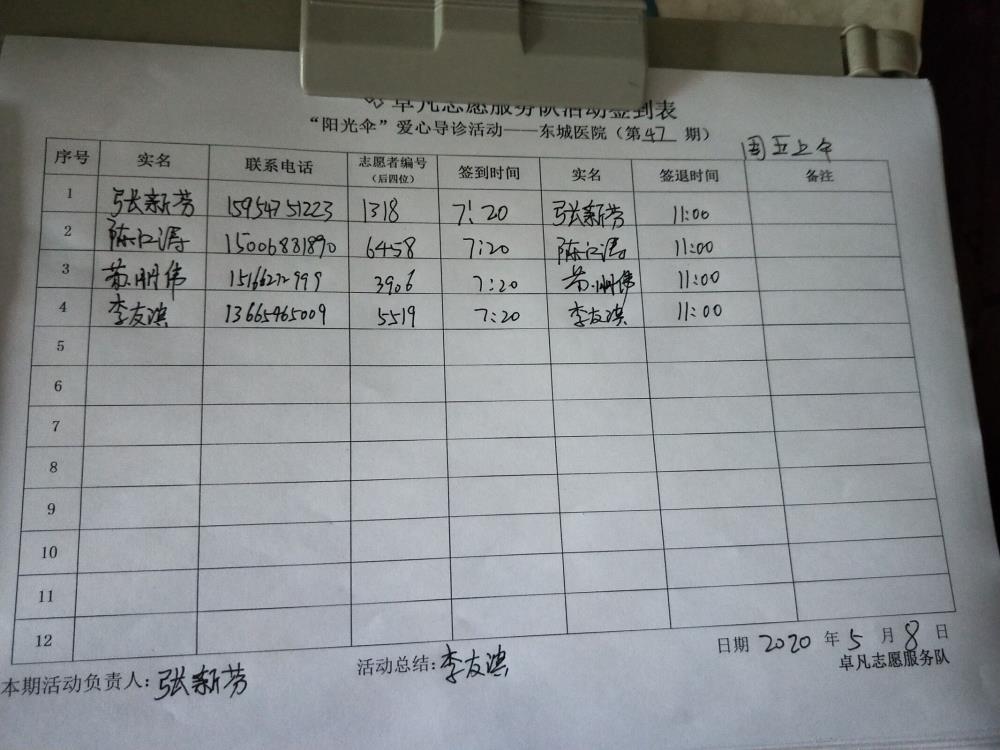 卓凡志愿服务队活动签到表
“阳光伞”爱心导诊活动——东城医院（第47期）
周五上午
序号 实名 联系电话 志愿者编号（后四位） 签到时间 实名 签退时间 备注
1 张新芳 15954751223 1318 7:20 张新芳 11:00
2 陈江涛 15006881890 6458 7:20 陈江涛 11:00
3 苏明伟 15166272999 3906 7:20 苏明伟 11:00
4 李友滨 13665465009 5519 7:20 李友滨 11:00
5
6
7
8
9
10
11
12
日期 2020 年 5 月 8 日
本期活动负责人：张新芳 活动总结：李友滨 卓凡志愿服务队